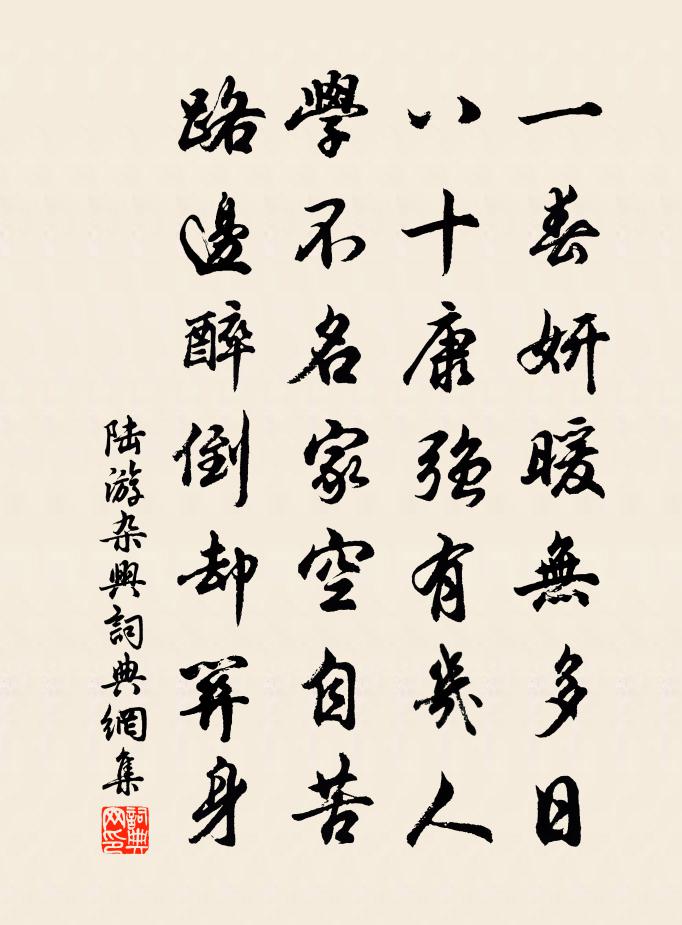 一春妍暖無多日
八十康强有幾人
學不名家空自苦
路邊醉倒却筭身
陆游杂興詞典網集
詞典网印